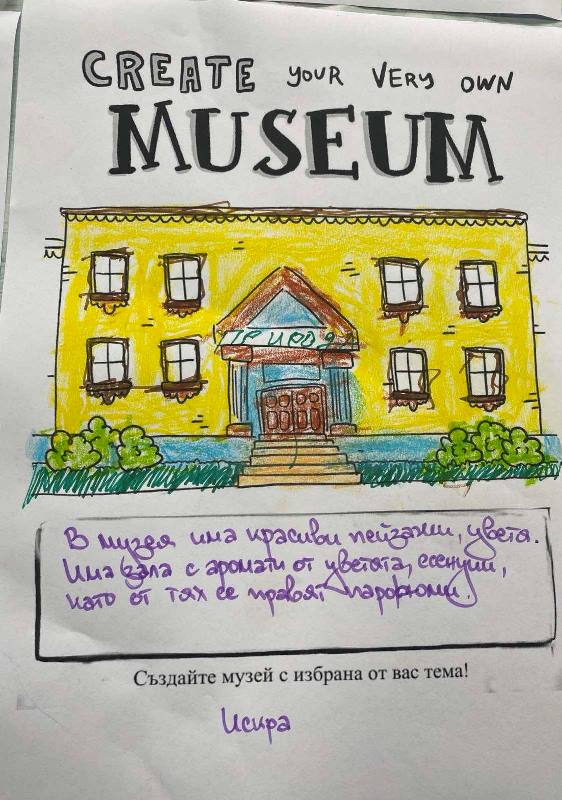 CREATE YOUR VERY OWN
MUSEUM
ПРИРОДА
В музея има красиви пейзажи, цветя.
Има зала с аромати от цветята, есенции,
като от тях се правят парфюми.
Създайте музей с избрана от вас тема!
Искра